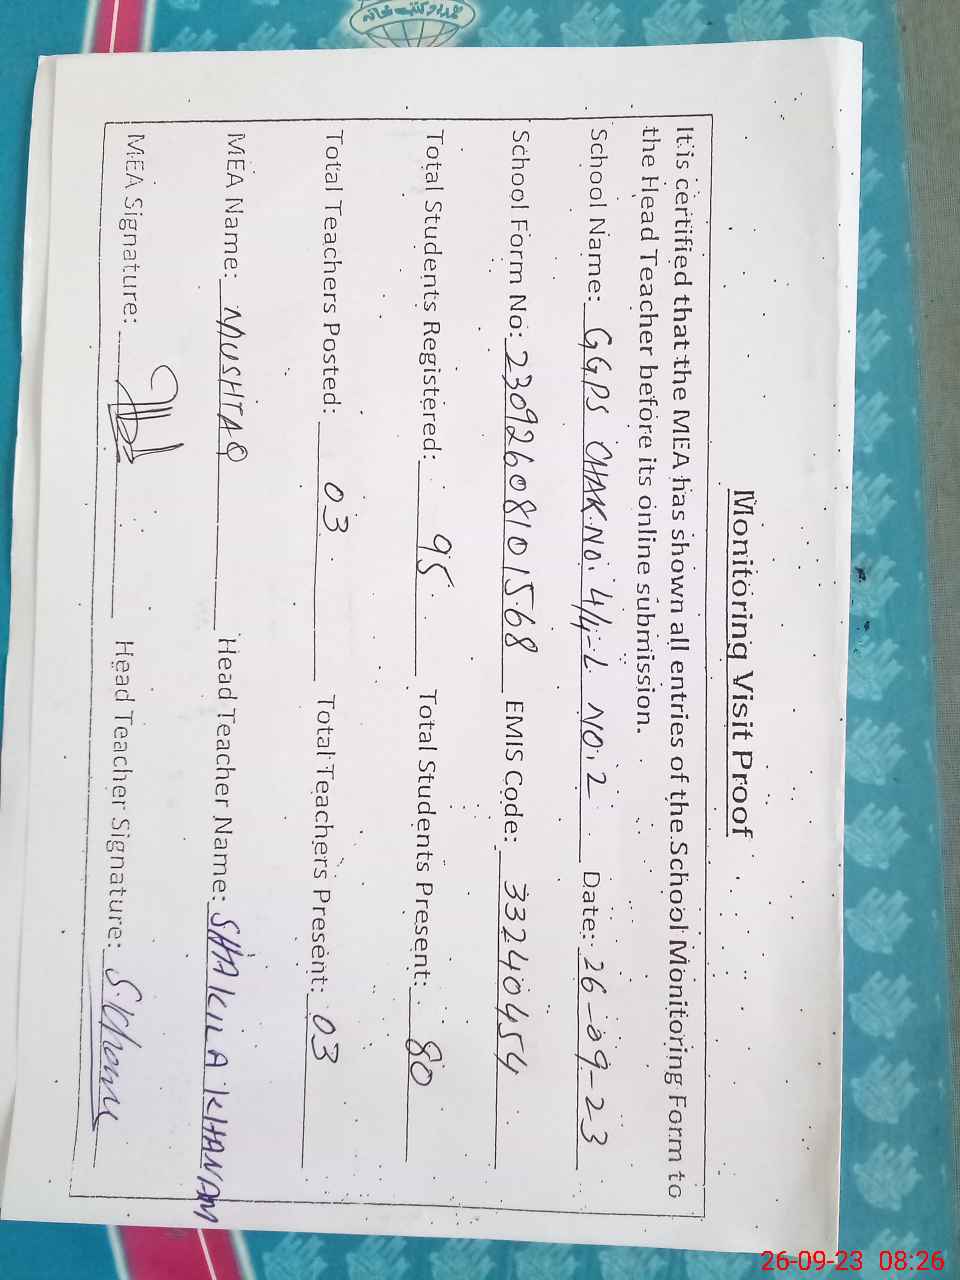 Monitoring Visit Proof
It is certified that the MEA has shown all entries of the School Monitoring Form to
the Head Teacher before its online submission.
School Name: GGPS CHAK NO. 4/4-L NO. 2 Date: 26-09-23
School Form No: 23092608101568 EMIS Code: 33240454
Total Students Registered: 95 Total Students Present: 80
Total Teachers Posted: 03 Total Teachers Present: 03
MEA Name: MUSHTAQ Head Teacher Name: SHAKILA KHANAM
MEA Signature: Head Teacher Signature:
26-09-23 08:26